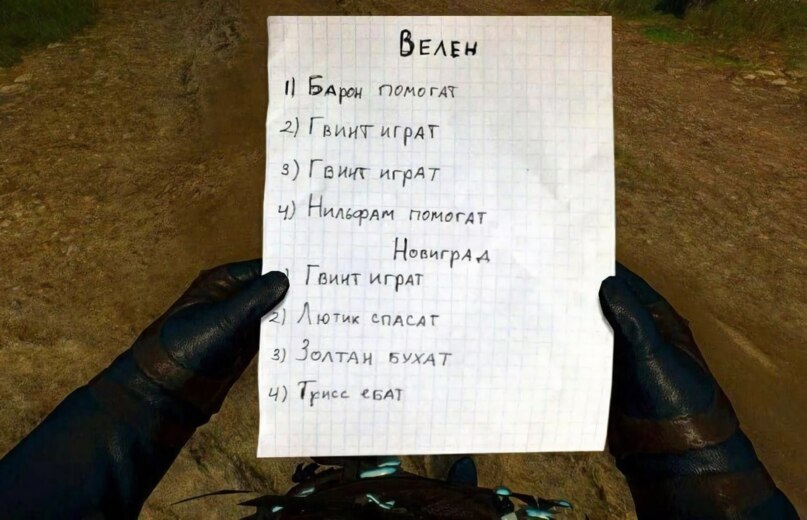 Велен
1) Барон помогат
2) Гвинт играт
3) Гвинт играт
4) Нильфам помогат
Новиград
Гвинт играт
2) Лютик спасат
3) Золтан бухат
4) Трисс ебат